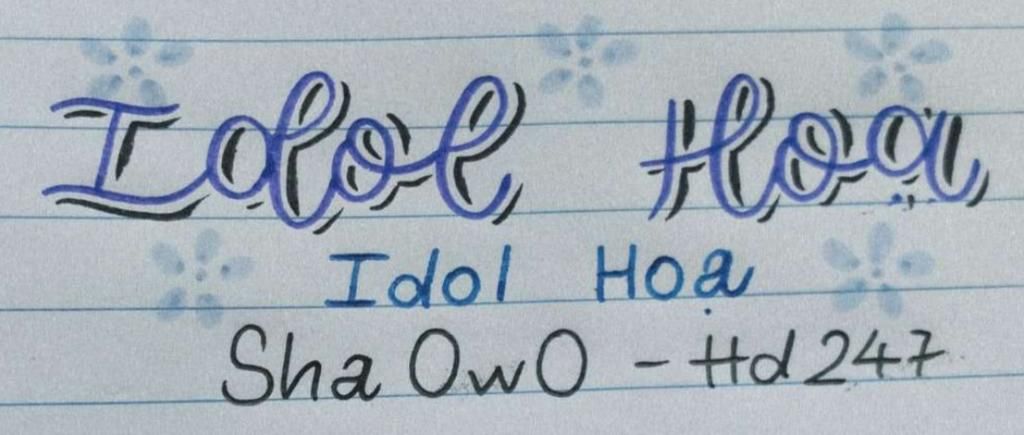 Idol Hoạ
Idol Hoạ
Sha OwO - Hd247